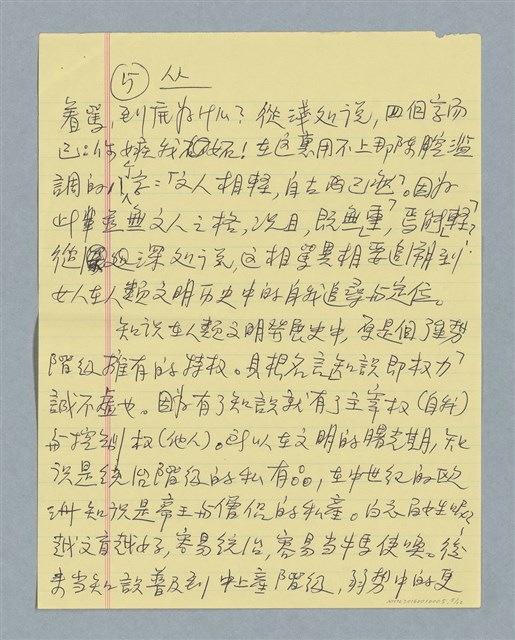 ⑤ 丛
着罵, 到底为什么? 從淺处说, 四個字而
已: 你嫉我妬! 在这裏用不上那陳腔滥
調的八字=「文人相輕, 自古而已然」。因为
此輩並無文人之格, 况且, 既無「重」, 焉能「輕」?
從深处说, 这相罵異相要追溯到
女人在人類文明历史中的自我追尋与定位。
知识在人類文明發展史中, 一直是個强勢
階級擁有的特权。具报名言「知識即权力」
誠不虚也。因为有了知識就有了主宰权(自我)
与控制权(他人)。所以在文明的曙光期, 知
识是统治階级的私有品, 在中世纪的欧
洲知识是帝王与僧侶的私産。白衣百姓嘛
越文盲越好, 容易统治, 容易当牛馬使唤。後
来当知識普及到中上產階級, 弱势中的更